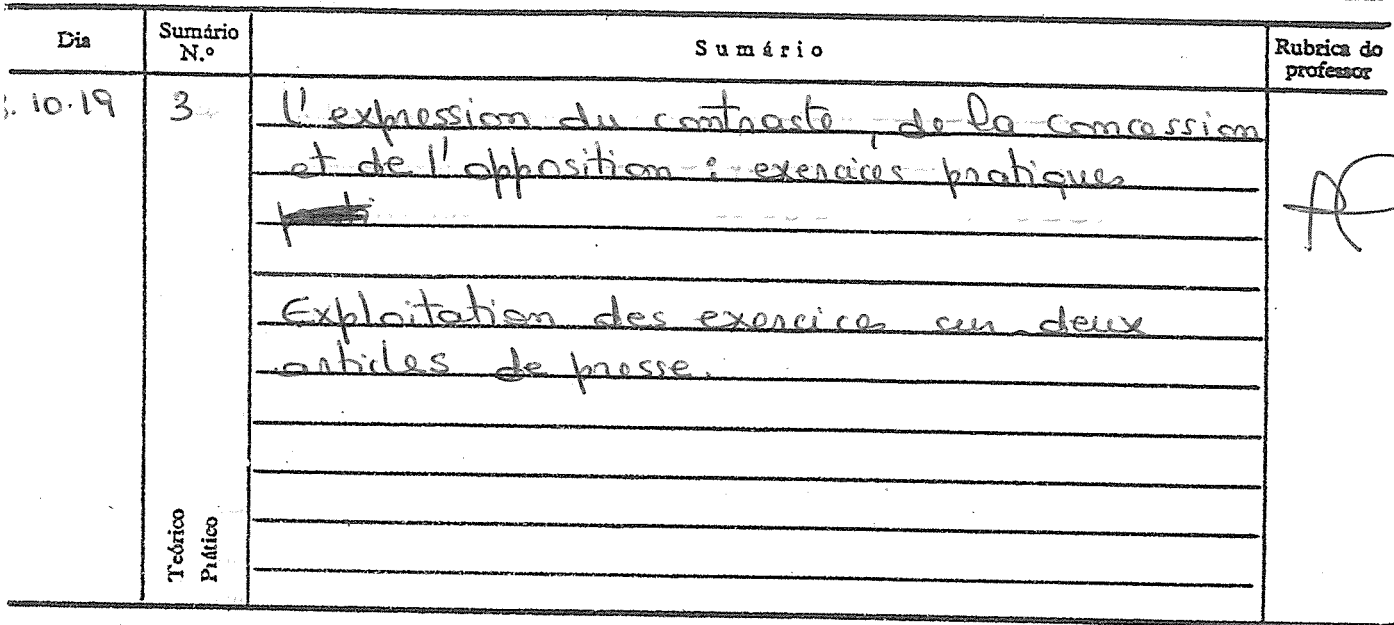 Dia Sumário N.º Sumário Rubrica do professor
. 10.19 3 L'expression du contraste, de la concession
et de l'opposition : exercices pratiques
Exploitation des exercices deux
articles de presse.
Teórico
Prático